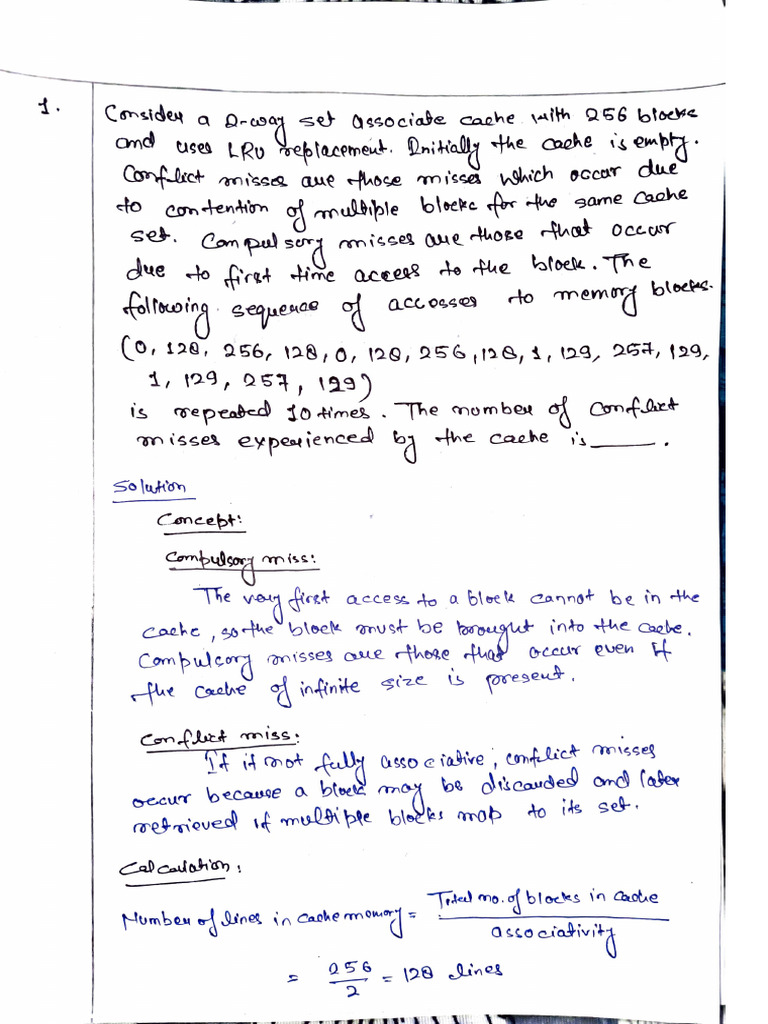 1.
Consider a 2-way set associate cache with 256 blocks
and uses LRU replacement. Initially the cache is empty.
Conflict misses are those misses which occur due
to contention of multiple blocks for the same cache
set. Compulsory misses are those that occur
due to first time access to the block. The
following sequence of accosses to memory blocks.
(0, 128, 256, 128, 0, 128, 256, 128, 1, 129, 257, 129,
1, 129, 257, 129)
is repeated 10 times. The number of conflict
misses experienced by the cache is_____.
Solution
Concept:
Compulsory miss:
The very first access to a block cannot be in the
cache, so the block must be brought into the cache.
Compulcory misses are those that occur even if
the cache of infinite size is present.
Conflict miss:
If it not fully associative, conflict misses
occur because a block may be discauded and later
retrieved if multiple blocks map to its set.
Calculation:
Number of lines in cache memory = Total no. of blocks in cache / associativity
= 256 / 2 = 128 lines